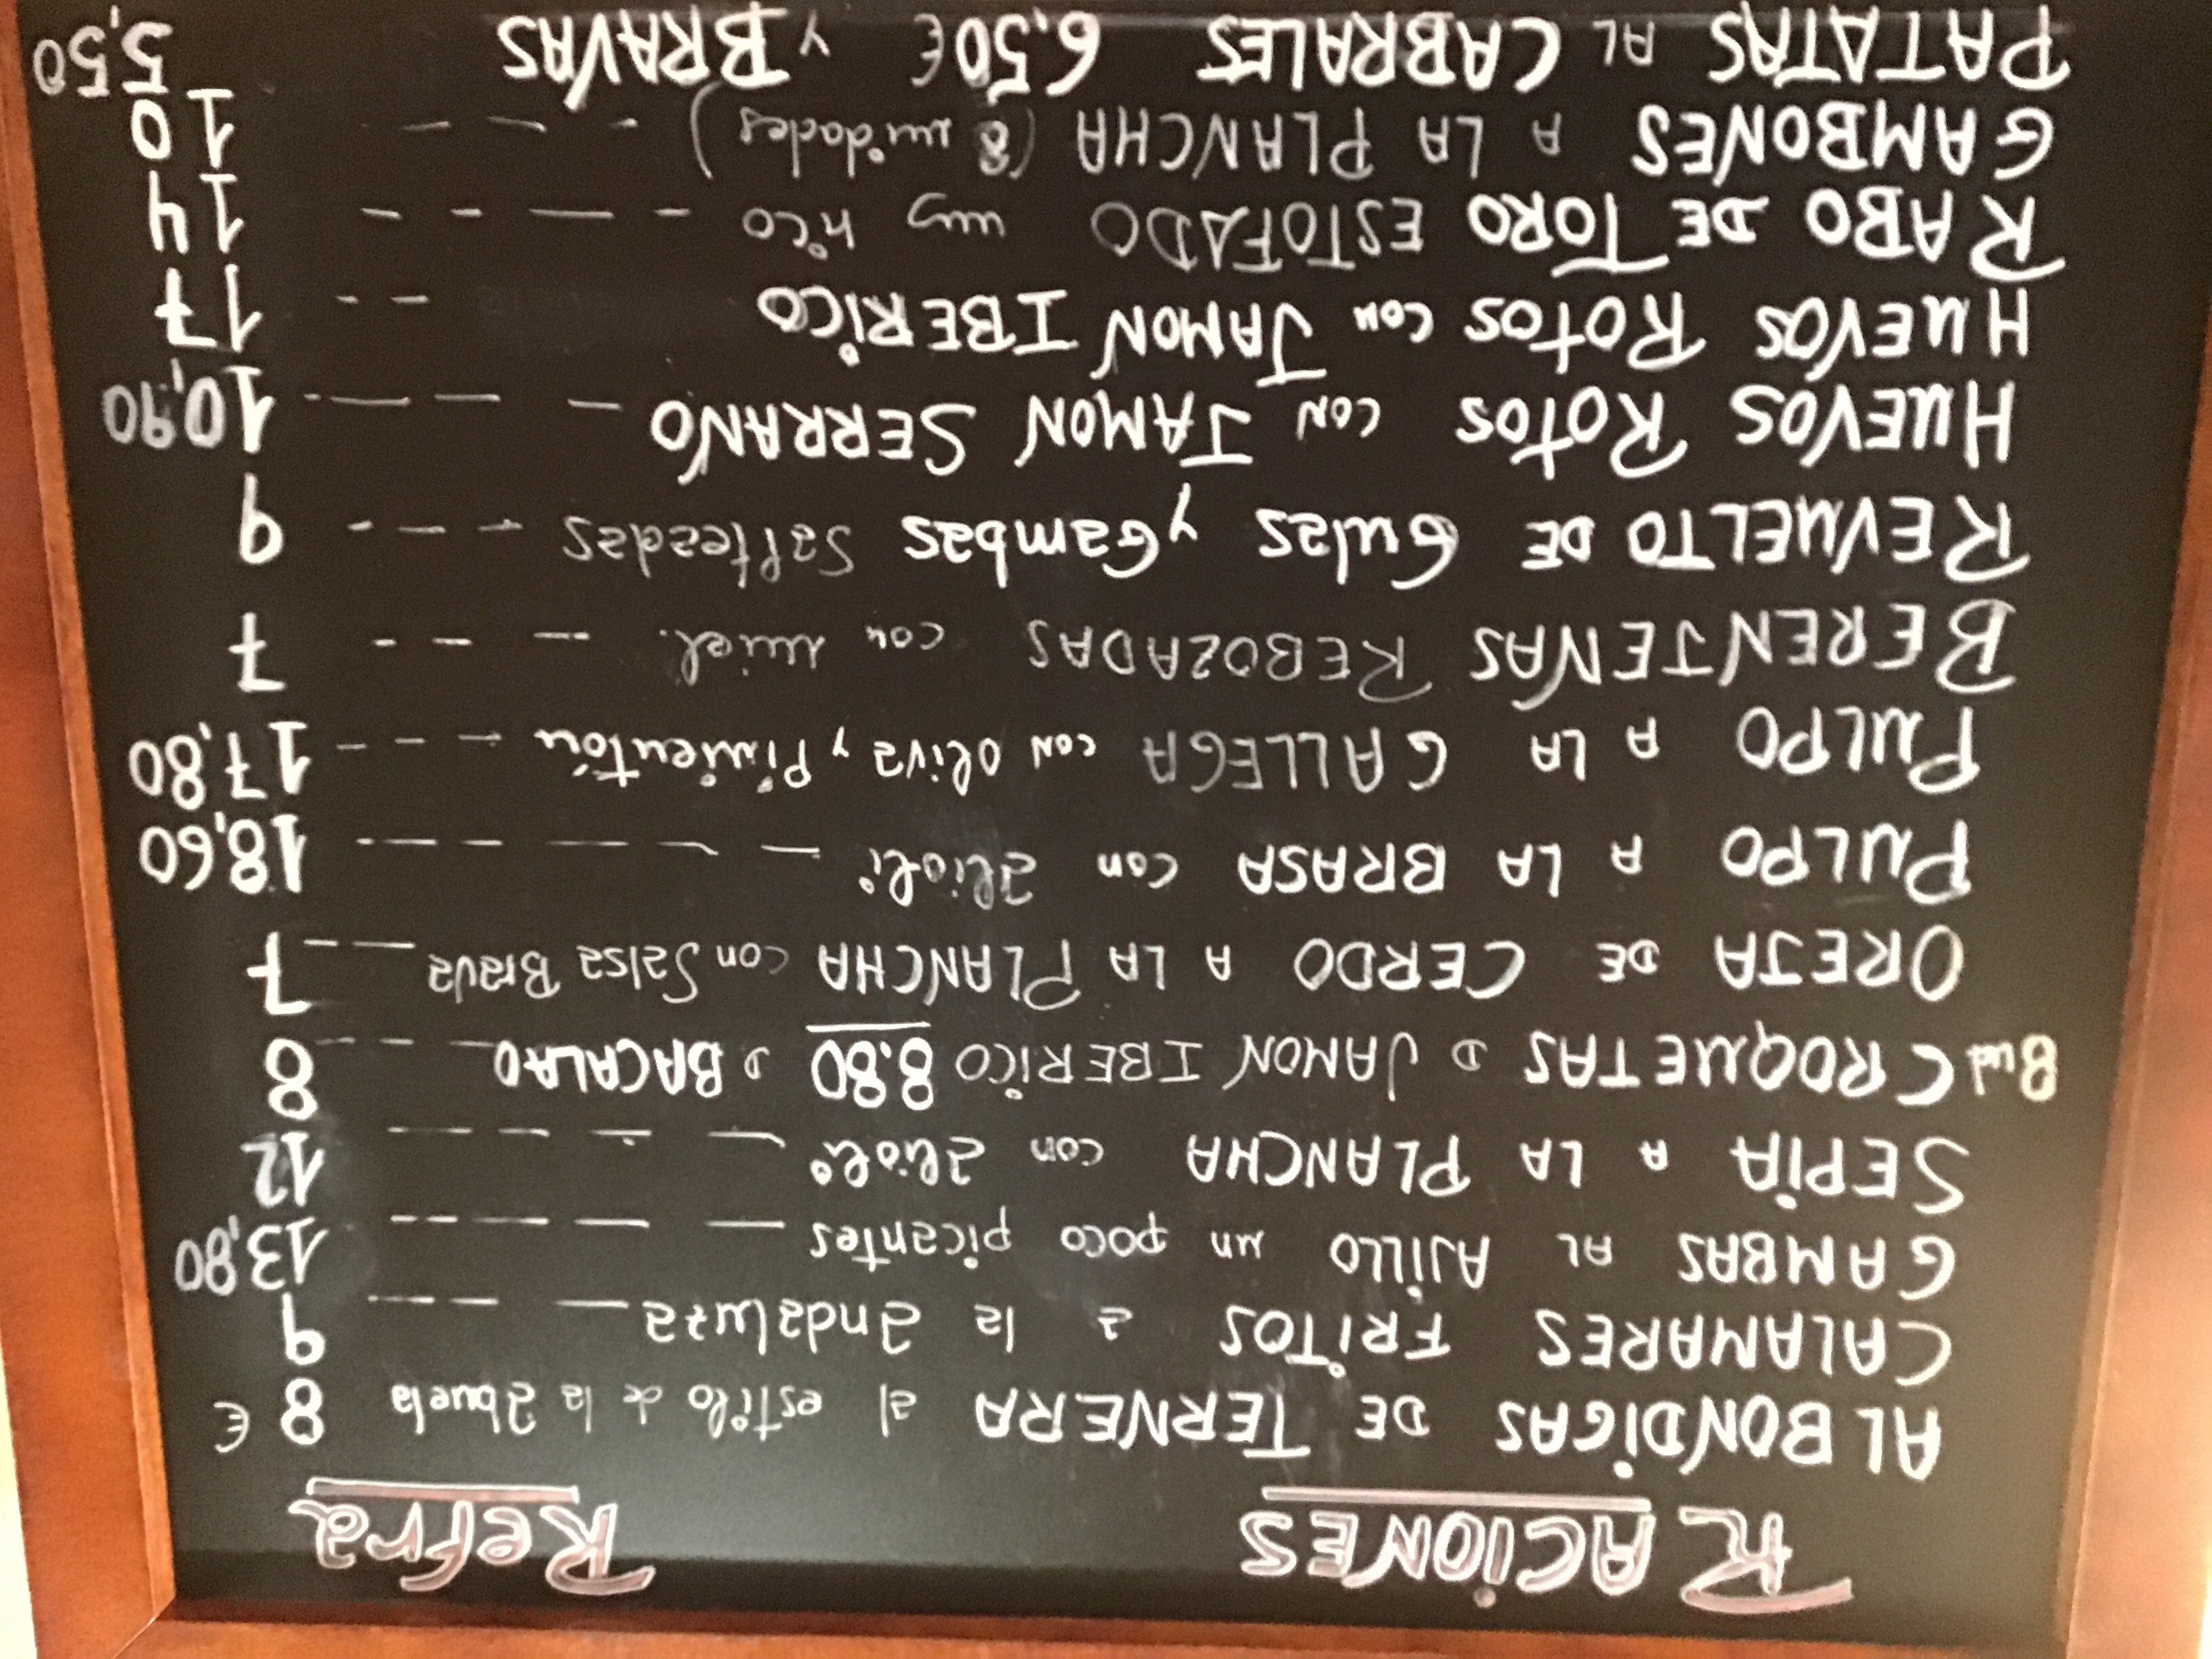 RACIONES Refra
ALBONDIGAS DE TERNERA al estilo de la abuela 8 €
CALAMARES FRITOS a la andaluza - - - - 9
GAMBAS AL AJILLO un poco picantes - - - - - 13,80
SEPIA A LA PLANCHA con alioli - - - - - - 12
8ud CROQUETAS D JAMON IBERICO 8.80 D BACALAO - - - - 8
OREJA DE CERDO A LA PLANCHA con Salsa Brava - - - 7
PULPO A LA BRASA con alioli - - - - - - - 18,60
PULPO A LA GALLEGA con oliva y Pimientón - - - - 17,80
BERENJENAS REBOZADAS con miel. - - - - 7
REVUELTO DE Gulas y Gambas salteadas - - - - 9
HUEVOS ROTOS CON JAMON SERRANO - - - - 10,90
HUEVOS ROTOS con JAMON IBERICO - - 17
RABO DE TORO ESTOFADO muy rico - - - - - 14
GAMBONES A LA PLANCHA (8 unidades) - - - - 10
PATATAS AL CABRALES 6,50€ Y BRAVAS 5,50